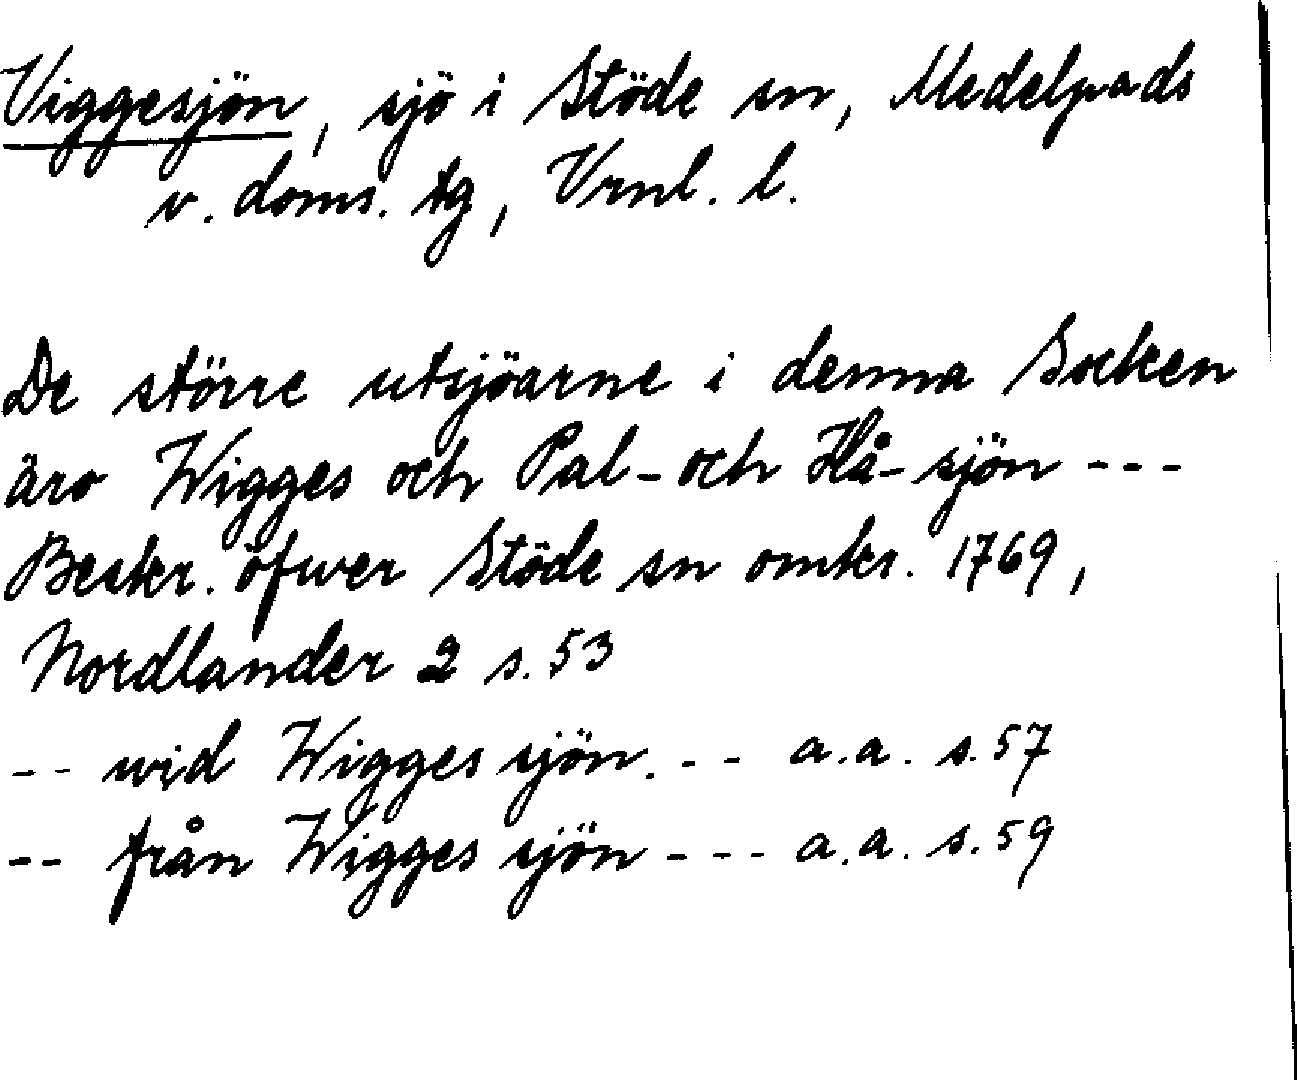 Viggesjön, sjö i Stöde sn, Medelpads
v. doms. tg, Vrnl. l.
De större utsjöarne i denna Socken
äro Wigges och Pal- och Hå- sjön ---
Beskr. öfwer Stöde sn omkr. 1769,
Nordlander 2 s. 53
-- wid Wigges sjön. -- a.a. s. 57
-- från Wigges sjön --- a.a. s. 59